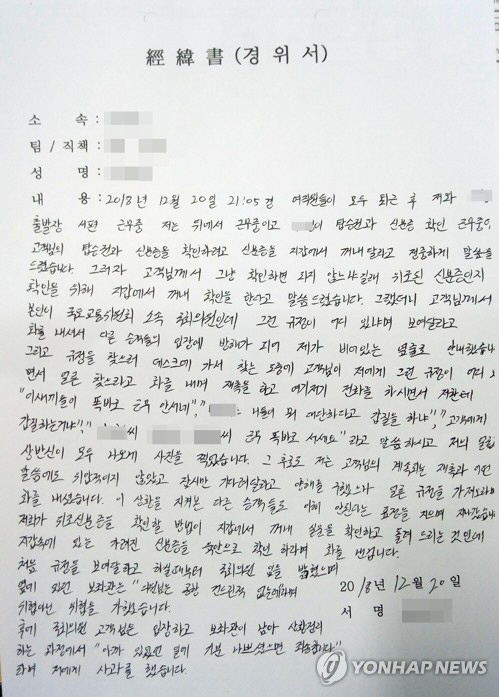 經緯書(경위서)
소 속 :
팀 / 직책 :
성 명 :
내 용 : 2018년 12월 20일 21:05경 여직원들이 모두 퇴근 후 저와
출발장 서편 근무중 저는 뒤에서 근무중이고 탑승권과 신분증 확인 근무중
고객님의 탑승권과 신분증을 확인하려고 신분증을 지갑에서 꺼내달라고 정중하게 말씀을
드렸습니다. 그러자 고객님께서 그냥 확인하면 되지 않느냐길래 위조된 신분증인지
확인을 위해 지갑에서 꺼내 확인을 한다고 말씀드렸습니다. 그랬더니 고객님께서
본인이 국토교통위원회 소속 국회의원인데 그런 규정이 어디 있냐며 보여달라고
화를 내셔서 다른 승객들의 입장에 방해가 되어 제가 비어있는 옆쪽으로 안내했습니
그리고 규정을 찾으러 데스크에 가서 찾는 도중에 고객님이 저에게 그런 규정이 어디
면서 얼른 찾으라고 화를 내며 재촉을 하고 여기저기 전화를 하시면서 저한테
"이새끼들이 똑바로 근무 안서네", " 니들이 뭐 대단하다고 갑질을 하냐", "고객에게
갑질하는거냐", " 씨 씨 근무 똑바로 서세요" 라고 말씀하시고 저의 얼굴
상반신이 모두 나오게 사진을 찍었습니다. 그 후로도 저는 고객님의 계속되는 재촉과
말씀에도 위압적이지 않았고 잠시만 기다려달라고 양해를 구했으나 얼른 규정을 가져오라
화를 내셨습니다. 이 상황을 지켜본 다른 승객들도 이해 안된다는 표정을 지으며 지나갔습니
저희가 위조신분증을 확인할 방법이 지갑에서 꺼내 확인하고 돌려 드리는 것인데
지갑속에 있는 가려진 신분증을 육안으로 확인 하라며 화를 냅니다.
처음 규정을 보여달라고 하실때부터 국회의원 임을 밝혔으며
옆에 있던 보좌관은 공항
위협을 가하였습니다.
후에 국회의원 고객님은 입장하고 보좌관이 남아 상황정리
하는 과정에서 "아까 있었던 일에 기분 나쁘셨으면 죄송합니다"
하며 저에게 사과를 했습니다.
2018년 12월 20일
서 명
YONHAP NEWS